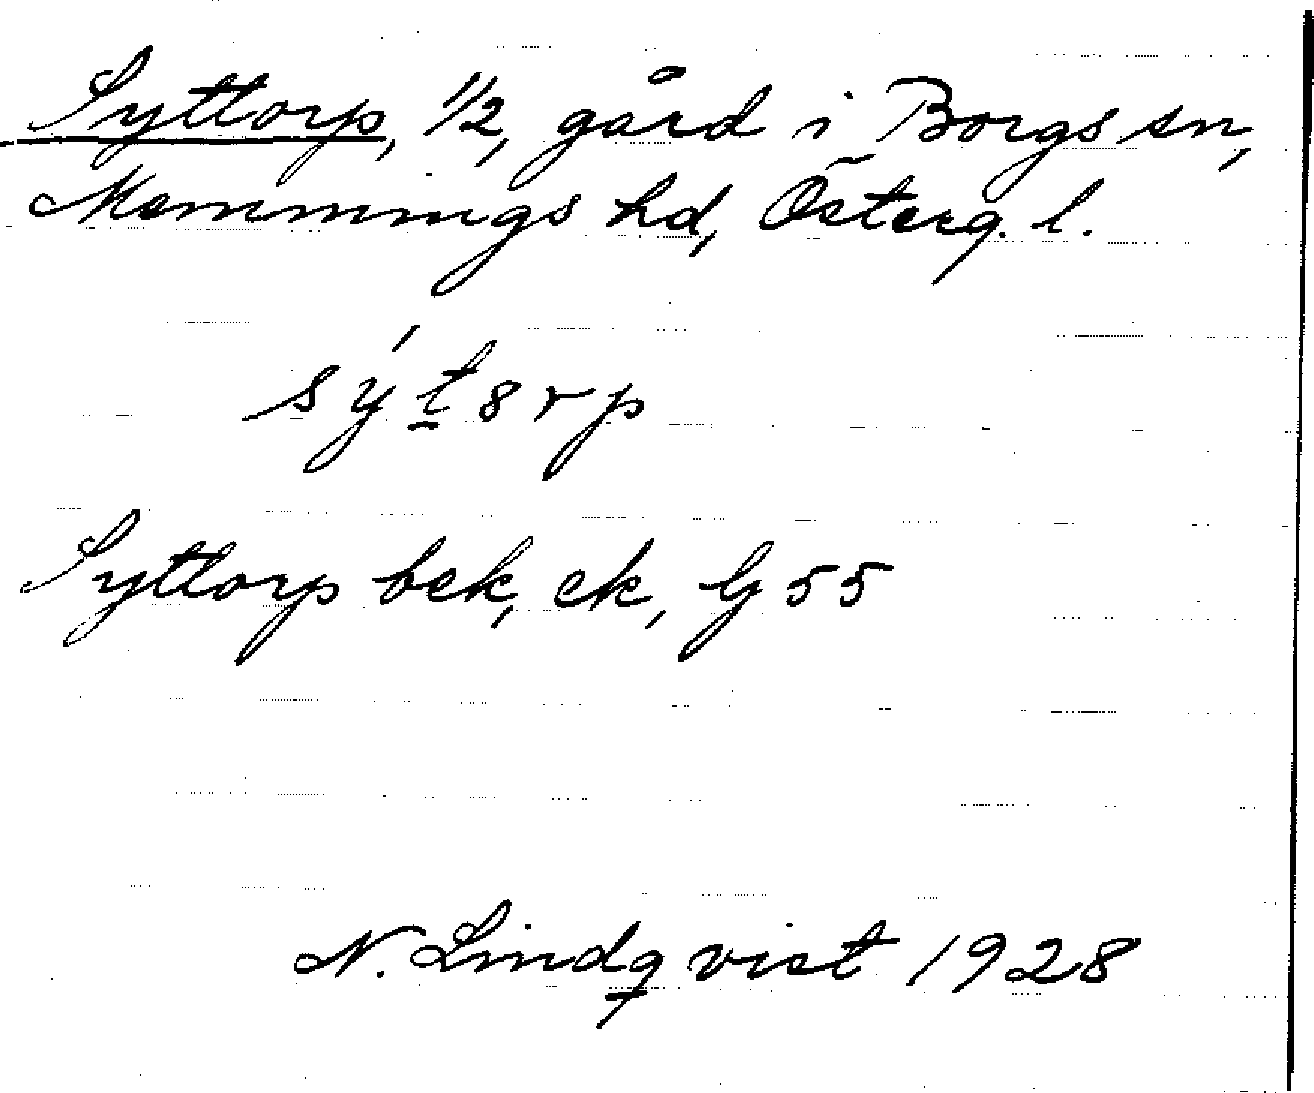 Syttorp, 1/2, gård i Borgs sn,
Memmings hd, Österg. l.
sýt8rp
Syttorp bek, ek, Gj 55
N. Lindqvist 1928